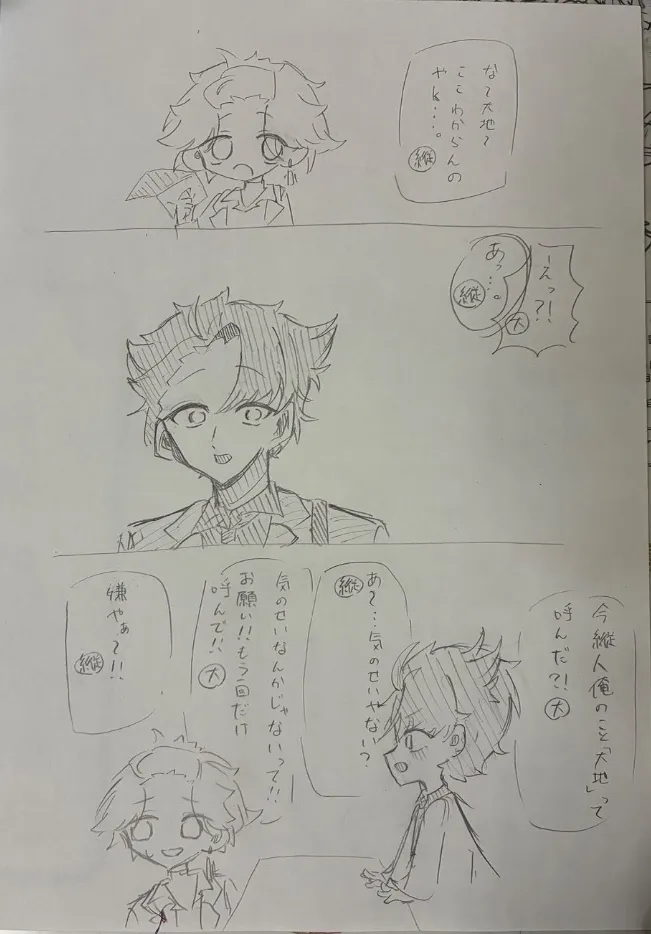 なて大地〜
ここわからんの
やk…。
縦
えっ?!
大
あっ…。
縦
今縦人俺のこと「大地」って
呼んだ?!
大
あ〜…気のせいやない?
縦
気のせいなんかじゃないって!!
お願い!!もう一回だけ
呼んで!!
大
嫌やぁ〜!!
縦